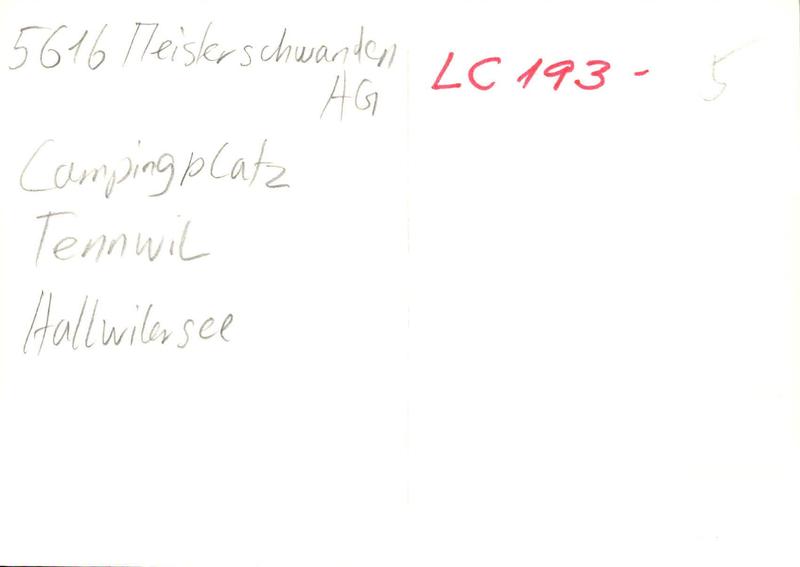 5616 Meisterschwanden
AG
Campingplatz
Tennwil
Hallwilersee
LC 193 - 5